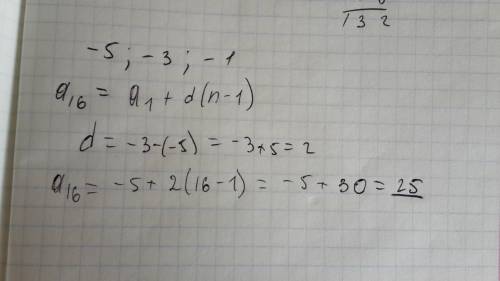 132
-5; -3; -1
a₁₆ = a₁ + d(n-1)
d = -3-(-5) = -3+5 = 2
a₁₆ = -5 + 2(16-1) = -5 + 30 = 25